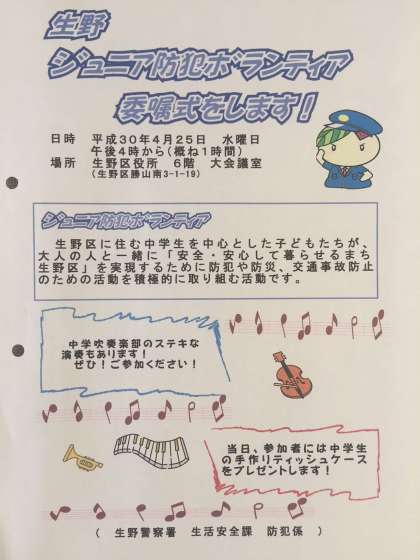 生野
ジュニア防犯ボランティア
委嘱式をします！
日時　平成30年4月25日　水曜日
午後4時から（概ね1時間）
場所　生野区役所　6階　大会議室
（生野区勝山南3-1-19）
ジュニア防犯ボランティア
生野区に住む中学生を中心とした子どもたちが、
大人の人と一緒に「安全・安心して暮らせるまち
生野区」を実現するために防犯や防災、交通事故防止
のための活動を積極的に取り組む活動です。
中学吹奏楽部のステキな
演奏もあります！
ぜひ！ご参加ください！
当日、参加者には中学生
の手作りティッシュケース
をプレゼントします！
（　生野警察署　生活安全課　防犯係　）